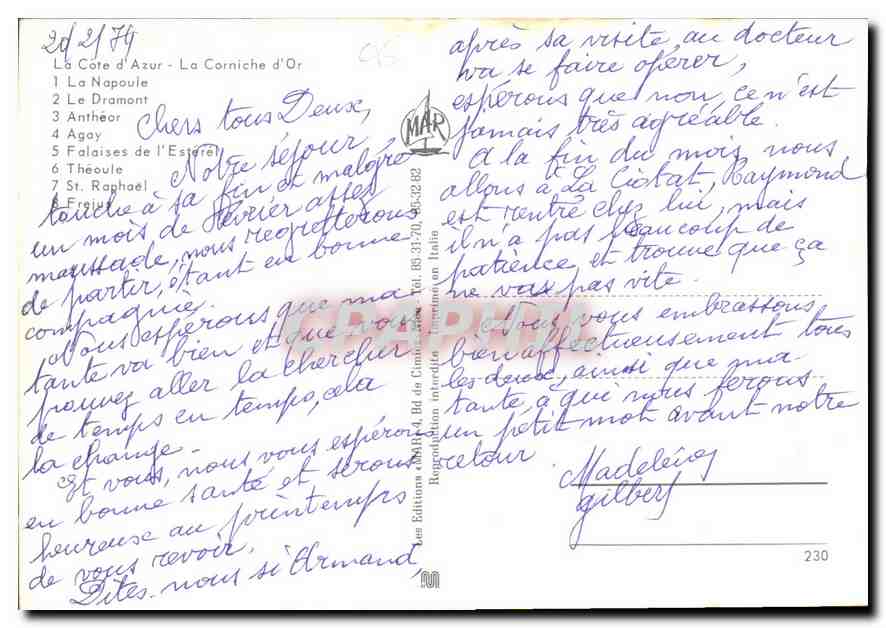 20/2/74
La Côte d'Azur - La Corniche d'Or
1 La Napoule
2 Le Dramont
3 Anthéor
4 Agay
5 Falaises de l'Esterel
6 Théoule
7 St. Raphaël
8 Frejus
Chers tous Deux,
Notre séjour
touche à sa fin et malgré
un mois de Février assez
maussade, nous regretterons
de partir, étant en bonne
compagnie.
Nous espérons que ma
tante va bien et que vous
pouvez aller la chercher
de temps en temps, cela
la change.
Et vous, nous vous espérons
en bonne santé et serons
heureuse au printemps
de vous revoir.
Dites-nous si Armand,
MAR
Les Editions «MAR» 4, Bd de Cimiez, Nice Tél. 85 31-70, 85-32 82
Reproduction interdite - Imprimé en Italie
après sa visite au docteur
va se faire opérer,
espérons que non, ce n'est
jamais très agréable.
A la fin du mois nous
allons à La Ciotat, Raymond
est rentré chez lui, mais
il n'a pas beaucoup de
patience et trouve que ça
ne va pas vite.
Nous vous embrassons
bien affectueusement tous
les deux, ainsi que ma
tante à qui nous ferons
un petit mot avant notre
retour
Madeleine
Gilbert
230
CPAPHIL